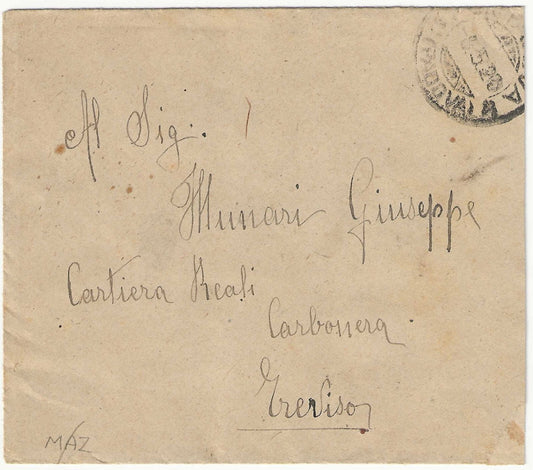 Al Sig.
Munari Giuseppe
Cartiera Reali
Carbonera
Treviso
MAZ